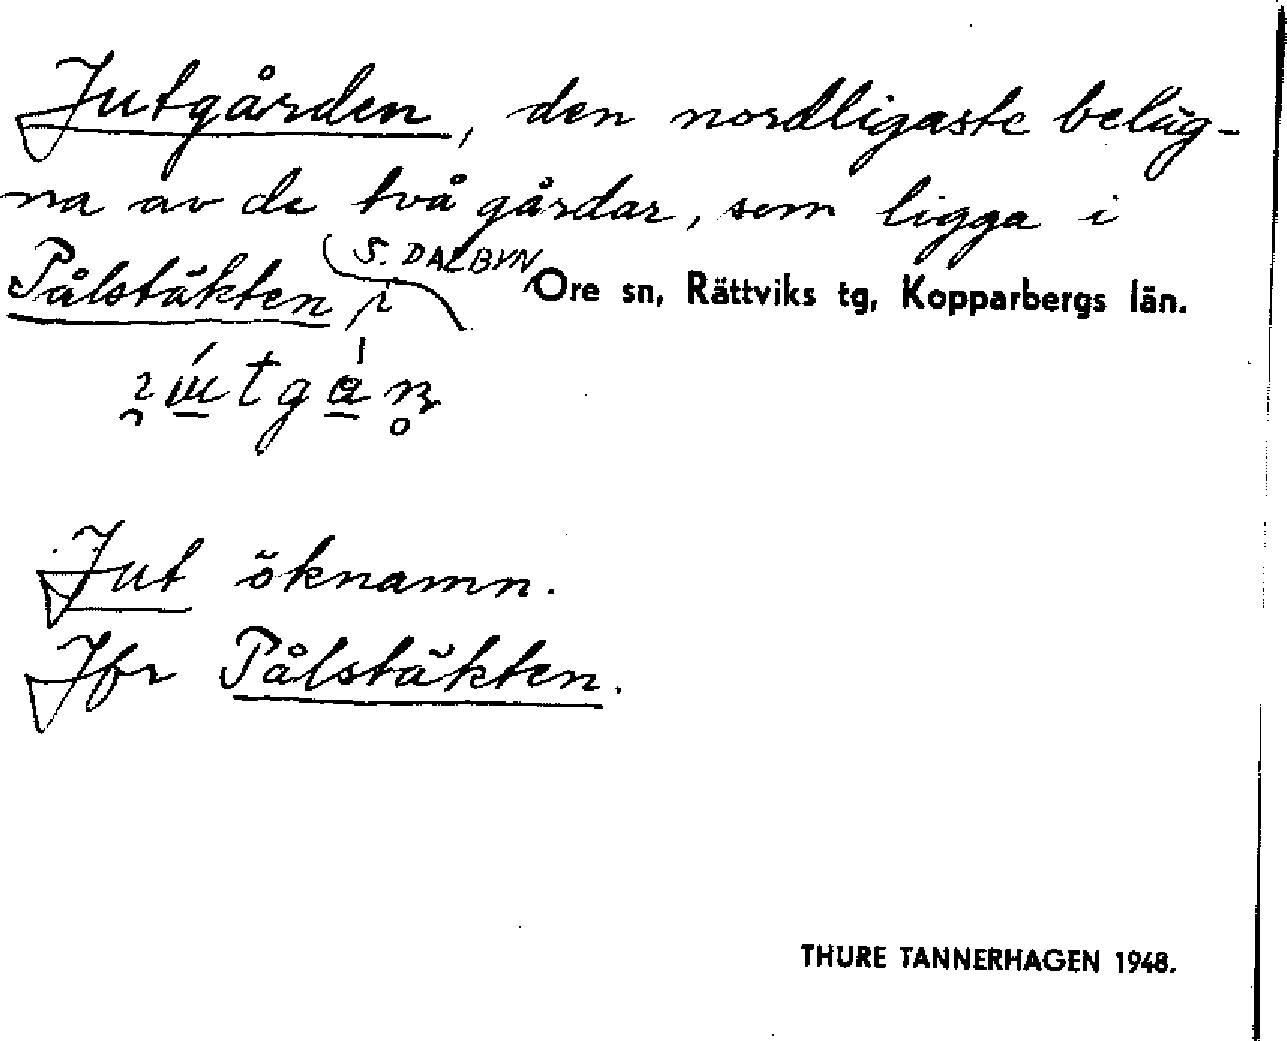 Jutgården, den nordligaste beläg-
na av de två gårdar, som ligga i
Pålstäkten i S. DALBYN Ore sn, Rättviks tg, Kopparbergs län.
Jut öknamn.
Jfr Pålstäkten.
THURE TANNERHAGEN 1948.